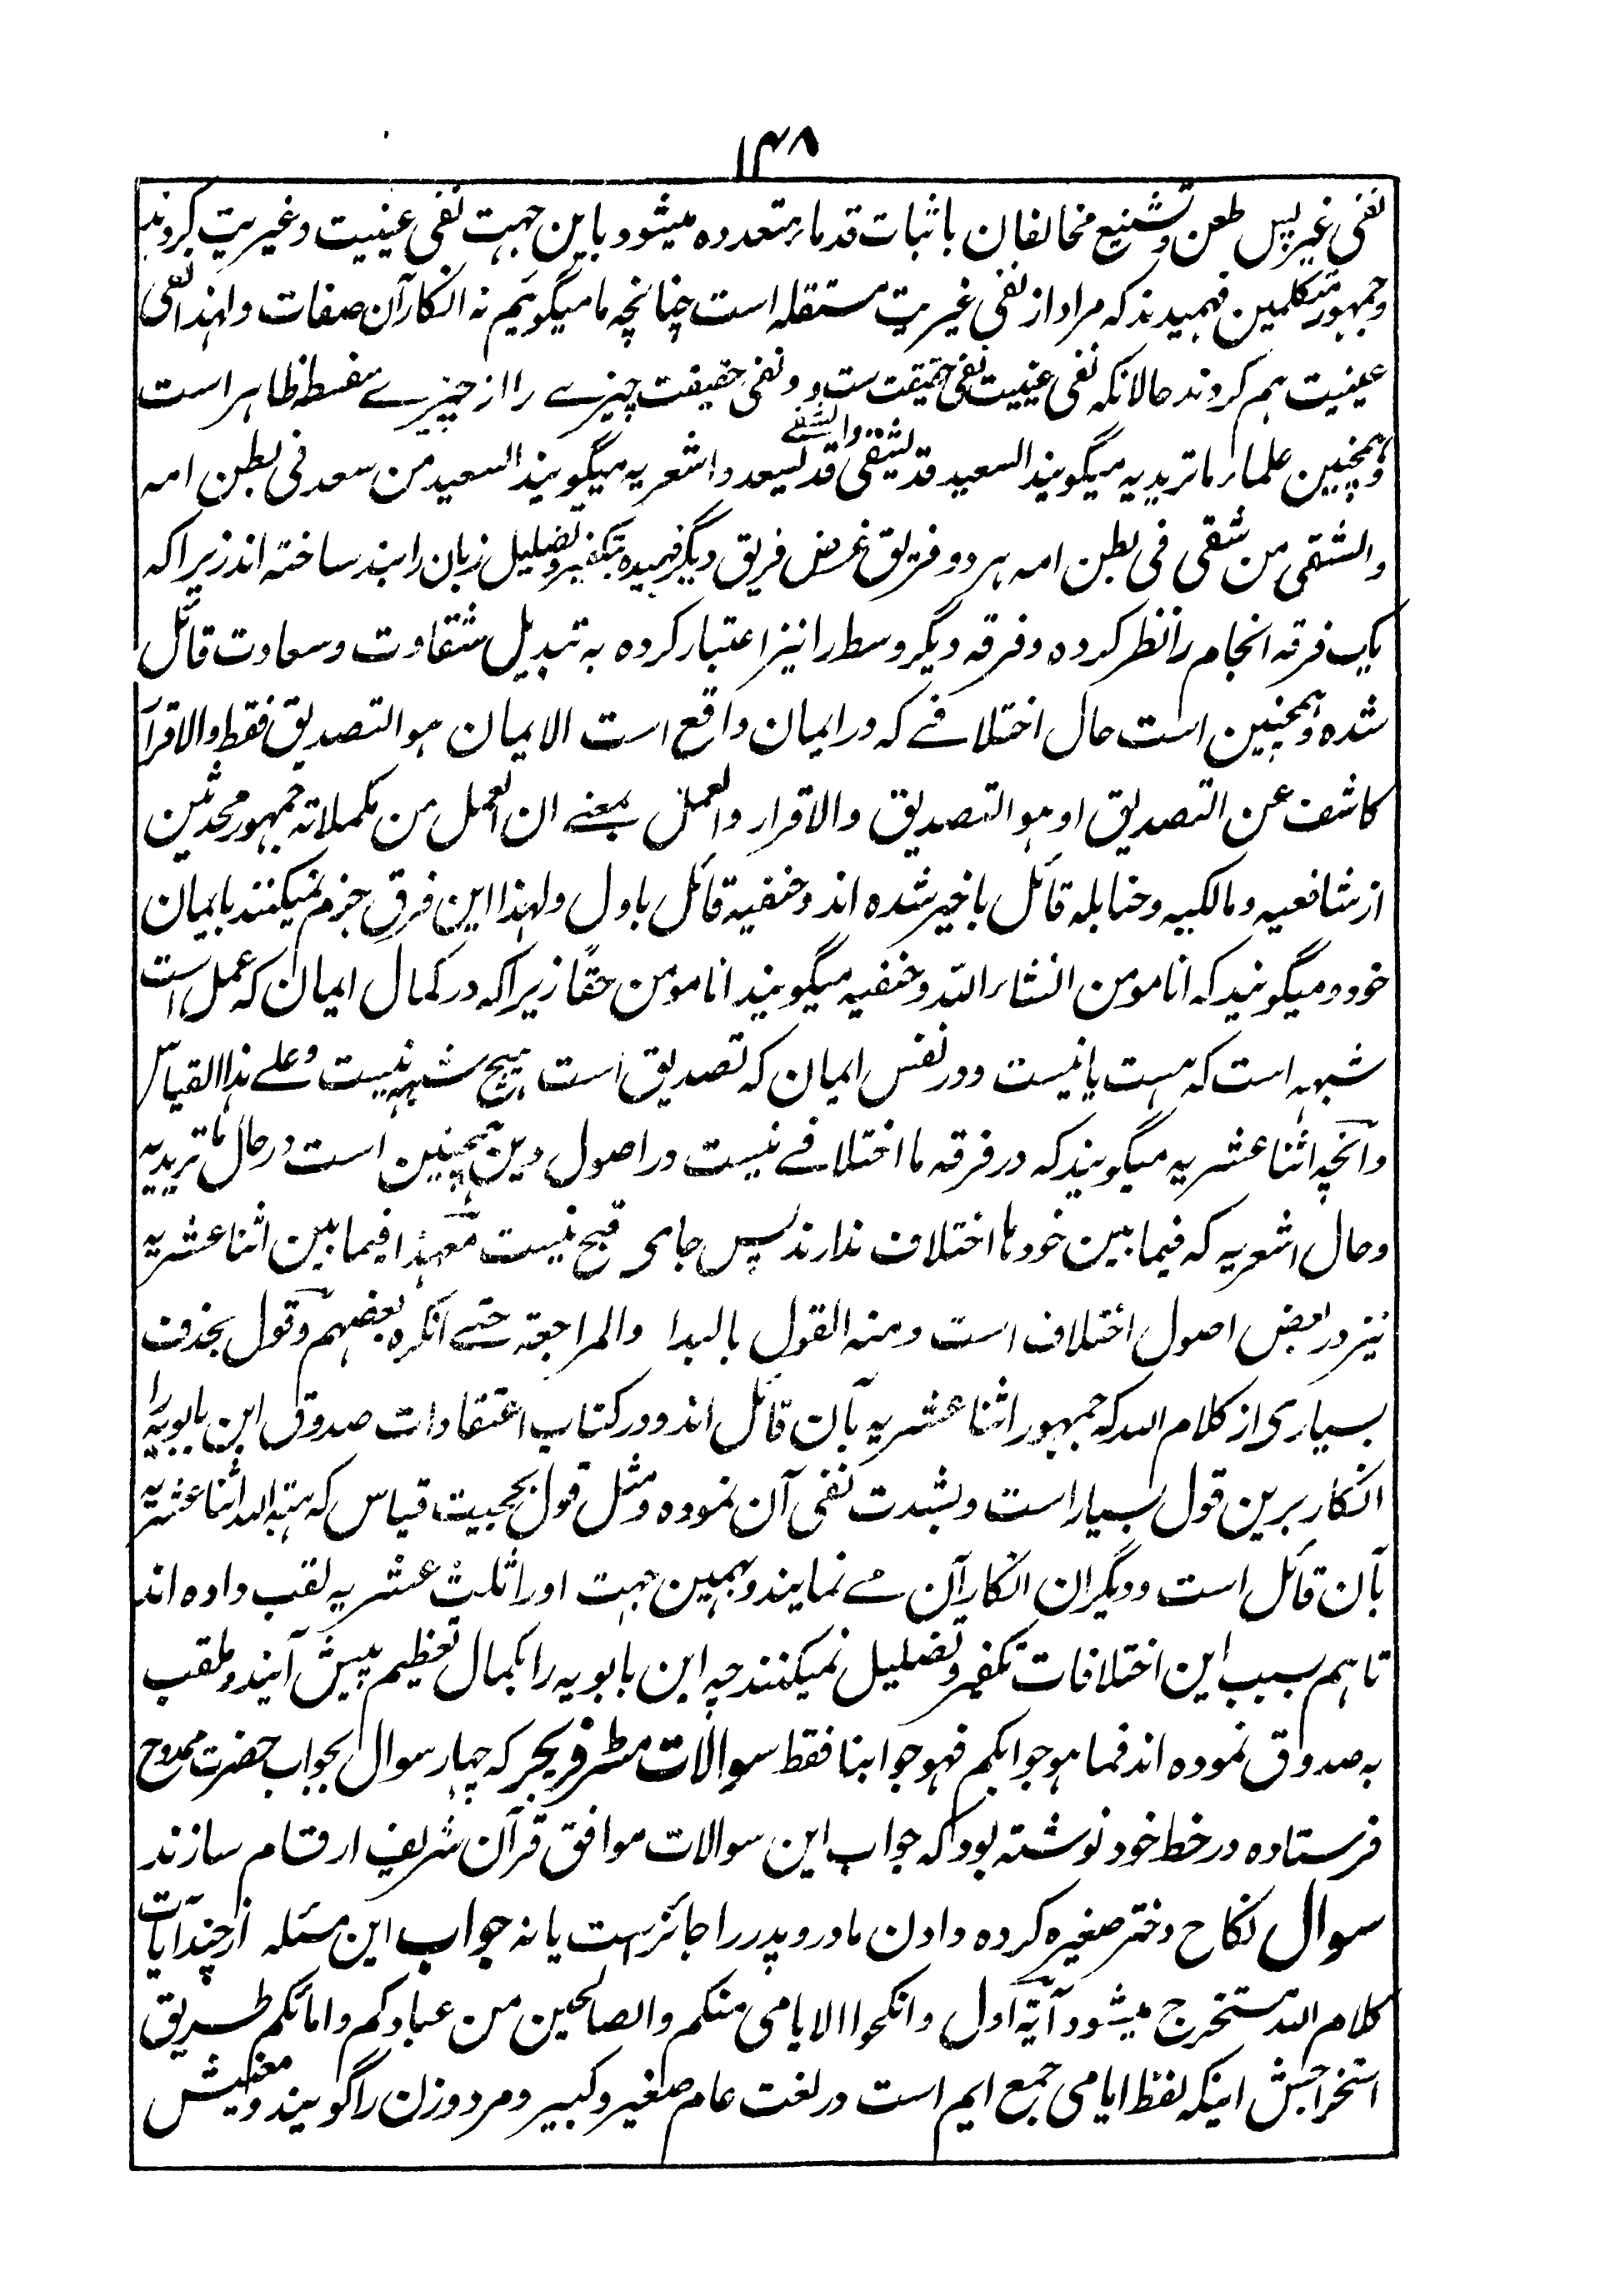 ۱۴۸
نفی غیر پس طعن و تشنیع مخالفان باثبات قدماء متعدده میشود باین جهت نفی عینیت و غیریت کردند
و جمهور متکلمین فهمیدند که مراد از نفی غیریت مستقله است چنانچه ما میگوئیم نه انکار آن صفات و لهذا نفی
عینیت هم کردند حالانکه نفی عینیت نفی حقیقت ست و نفی حقیقت چیزے را از چیزے سفسطه ظاهر است
و همچنین علماء ماتریدیه میگویند السعید قد یشقی والشقے قد یسعد و اشعریه میگویند السعید من سعد فی بطن امه
والشقی من شقی فی بطن امه هر دو فریق غرض فریق دیگر فهمیده بتکفیر و تضلیل زبان را بند ساخته اند زیرا که
یک فرقه انجام را نظر کرده و فرقه دیگر وسط را نیز اعتبار کرده به تبدیل شقاوت و سعادت قائل
شده و همچنین است حال اختلافے که در ایمان واقع است الایمان هو التصدیق فقط والاقرار
کاشف عن التصدیق او هو التصدیق والاقرار والعمل بمعنے ان العمل من مکملاته جمهور محدثین
از شافعیه و مالکیه و حنابله قائل باخیر شده اند و حنفیه قائل باول و لهذا این فرق جزم نمیکنند بایمان
خود و میگویند که انا مومن انشاء الله و حنفیه میگویند انا مومن حقاً زیرا که در کمال ایمان که عمل است
شبهه است که هست یا نیست و در نفس ایمان که تصدیق است هیچ شبهه نیست و علے هذا القیاس
و آنچه اثنا عشریه میگویند که در فرقه ما اختلافے نیست در اصول دین همچنین است در حال ماتریدیه
و حال اشعریه که فیما بین خودها اختلاف ندارند پس جای قبح نیست معهذا فیما بین اثنا عشریه
نیز در بعض اصول اختلاف است ومنه القول بالبدا والمراجعة حتے انکره بعضهم و قول بحذف
بسیاری از کلام الله که جمهور اثنا عشریه بآن قائل اند و در کتاب اعتقادات صدوق ابن بابویه را
انکار برین قول بسیار است و بشدت نفی آن نموده و مثل قول بحجیت قیاس که هبة الله اثنا عشریه
بآن قائل است و دیگران انکار آن مے نمایند و بهمین جهت او را ثلث عشریه لقب داده اند
تا هم بسبب این اختلافات تکفیر و تضلیل نمیکنند چه ابن بابویه را بکمال تعظیم پیش آیند و ملقب
به صدوق نموده اند فما هو جوابکم فهو جوابنا فقط سوالات مسٹر فریجر که چهار سوال بجواب حضرت ممدوح
فرستاده در خط خود نوشته بود که جواب این سوالات موافق قرآن شریف ارقام سازند
سوال نکاح دختر صغیره کرده دادن مادر و پدر را جائز ست یا نه جواب این مسئله از چند آیات
کلام الله مستخرج میشود آیة اول وانکحوا الایامی منکم والصالحین من عبادکم وامائکم طریق
استخراجش اینکه لفظ ایامی جمع ایم است در لغت عام صغیر و کبیر و مرد و زن را گویند و معنیش